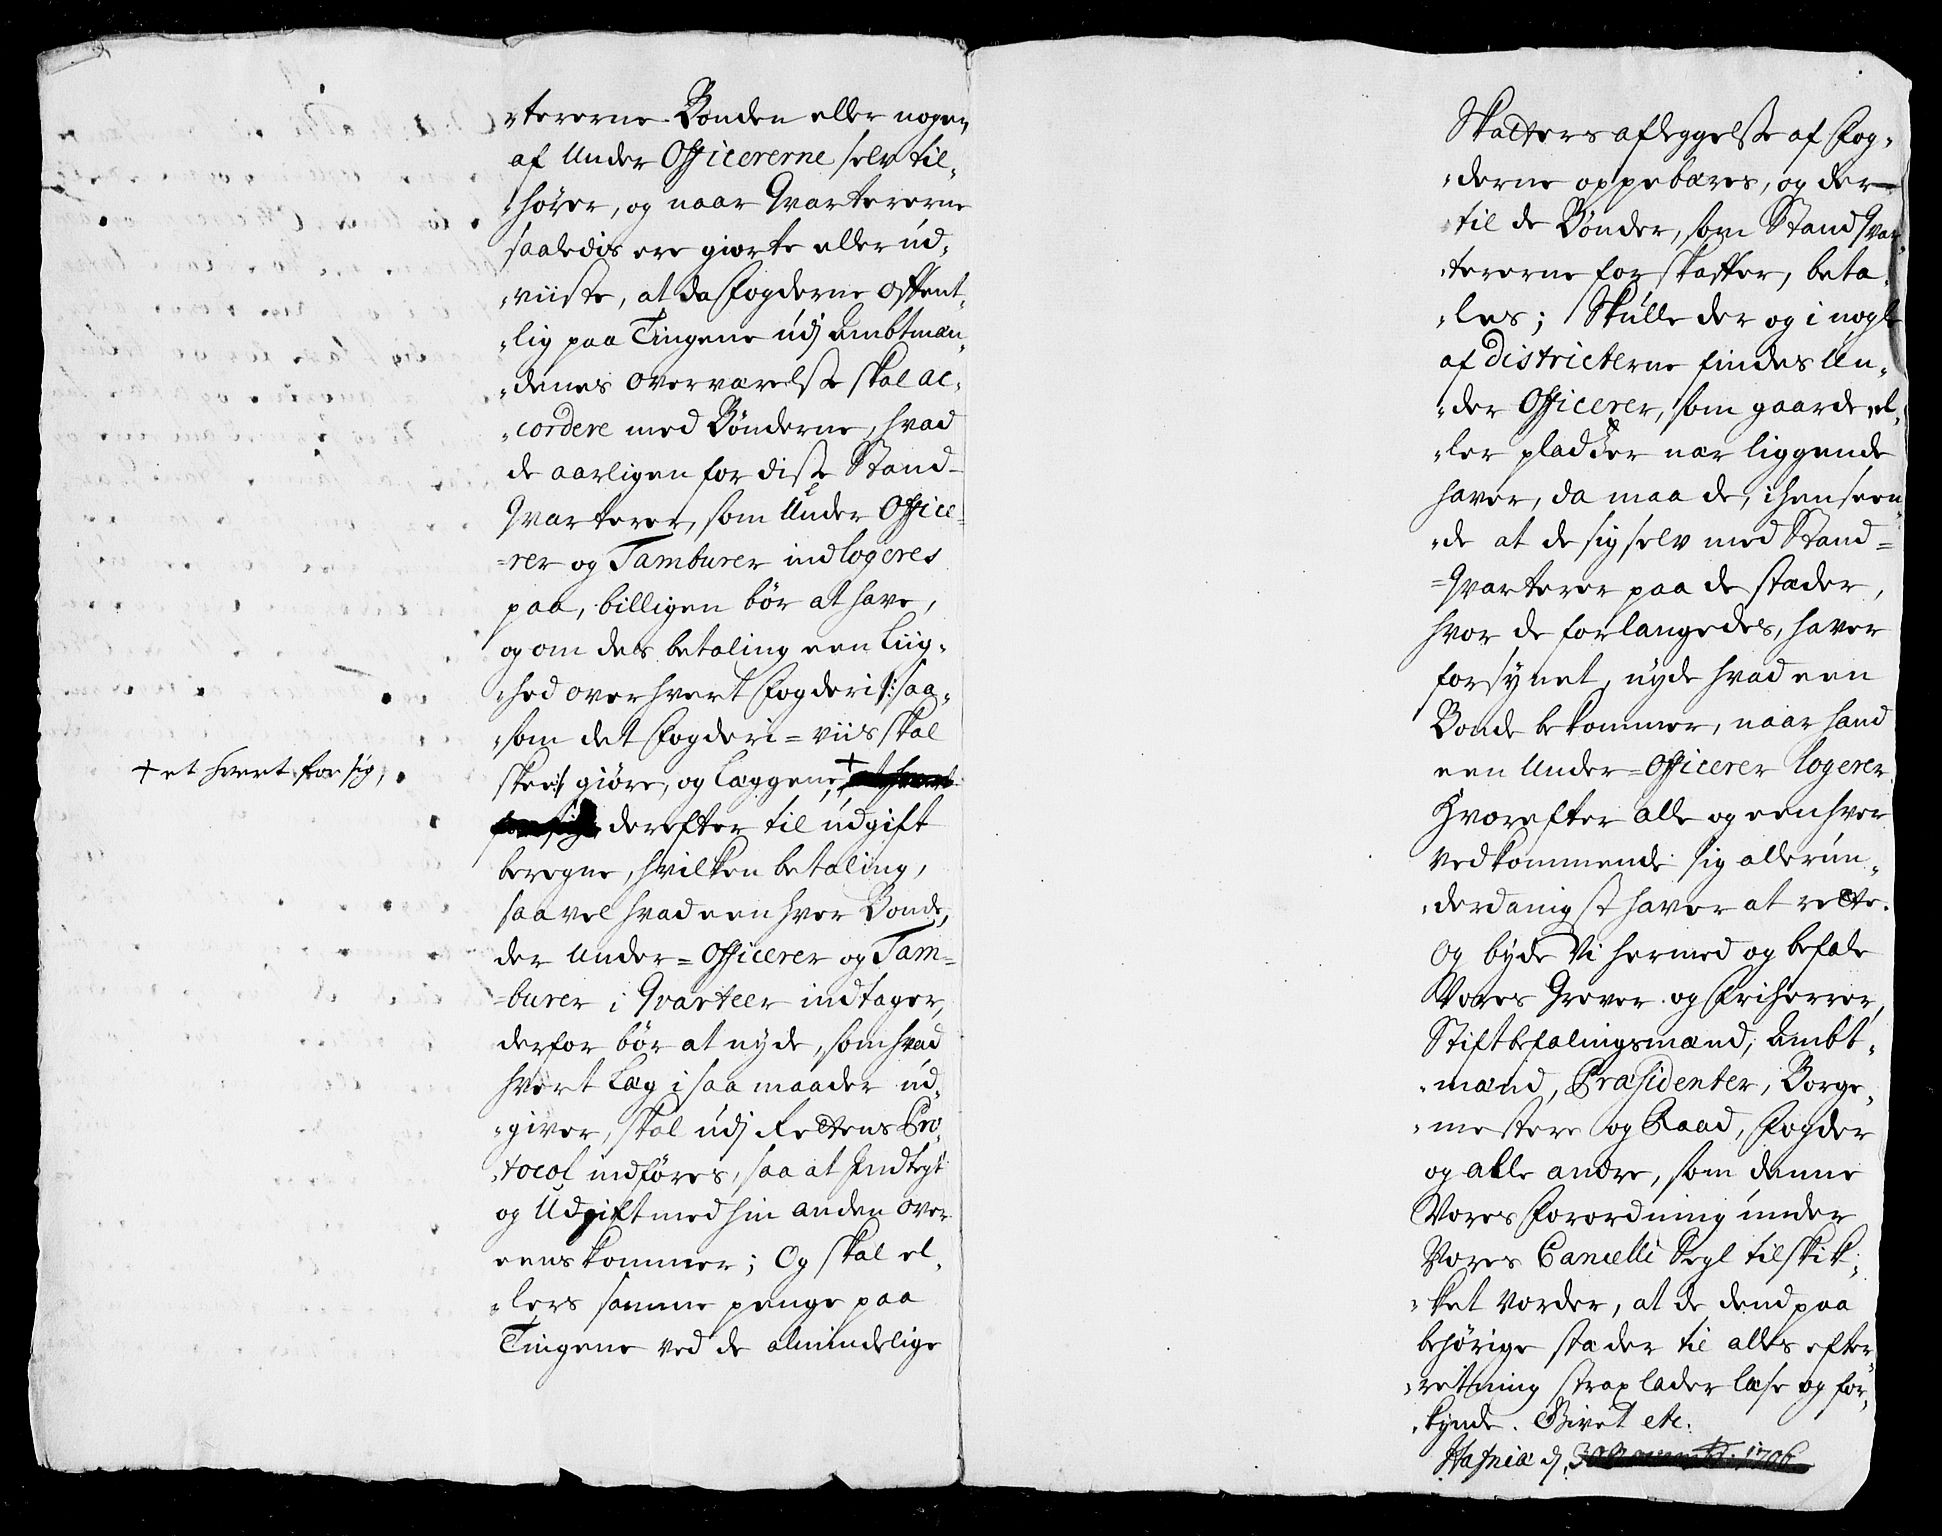 -tererne Bonden eller nogen
af Under Officererne selv til-
-hører, og naar Qvartererne
saaledis ere giorte eller ud-
-viiste, at da Fogderne offent-
-lig paa Tingene udj Ambtmæn-
-denes overværelse skal ac-
-cordere med Bønderne, hvad
de aarligen for disse Stand-
Qvarterer, som Under Office-
-rer og Tamburer indlogeres
paa, billigen bør at have,
og om dets betaling een Liig-
-hed over hvert Fogderi /: saa-
-som det Fogderi-viis skal
+ et hvert for sig,
skee :/ giøre, og Læggene, + et hvert
for sig derefter til udgift
beregne, hvilken betaling,
saavel hvad een hver Bonde,
der Under-Officerer og Tam-
-burer i Qvarteer indtager,
derfor bør at nyde, som hvad
hvert Læg i saa maader ud-
-giver, skal udj Rettens Pro-
-tocol indføres, saa at Indtegt
og Udgift med hin anden over
eens kommer; Og skal el-
-lers samme penge paa
Tingene ved de almindelige
Skatters aflæggelse af Fog-
-derne oppebæres, og der-
-til de Bønder, som Stand Qvar-
-tererne forskaffer, beta-
-les; Skulle der og i nogle
af Districterne findes Un-
-der Officerer, som gaarde el-
-ler pladser nær liggende
haver, da maa de, i henseen-
-de at de sig selv med Stand-
-Qvarterer paa de stæder,
hvor de forlangedes, haver
forsynet, nyde hvad een
Bonde bekommer, naar hand
een Under-Officerer logerer
Hvorefter alle og eenhver
vedkommende sig allerun-
-derdanigst haver at rette.
Og byde Vi hermed og befale
Vores Grever og Friherrer,
Stiftbefalingsmænd, Ambt-
-mænd, Præsidenter, Borge-
-mestere og Raad, Fogder
og alle andre, som denne
Vores Forordning under
Vores Cancelli Segl tilskik-
-ket vorder, at de dend paa
behørige stæder til alles efter-
-retning strax lader læse og for-
-kynde. Givet etc.
Hafniæ d. 30 Novembr: 1706